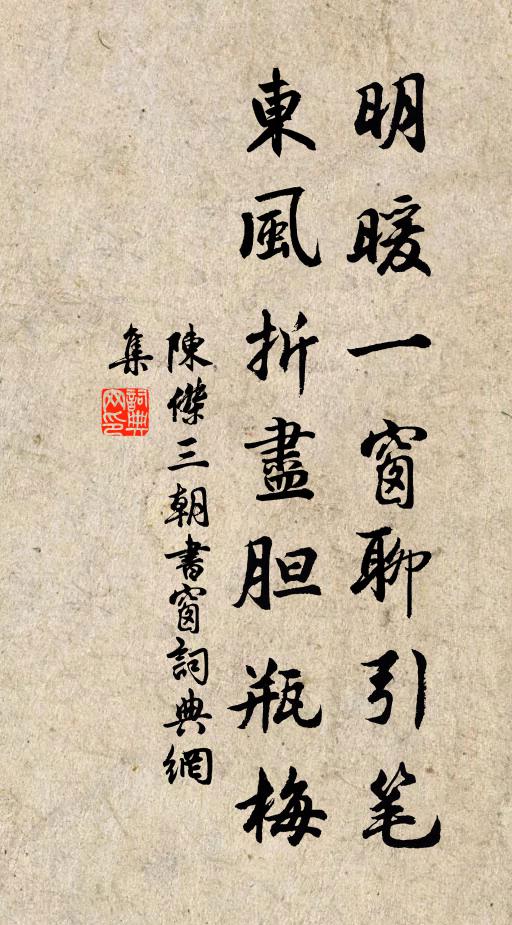 明暖一窗聊引笔
東風折盡胆瓶梅
陳傑三朝書窗詞典網
集
詞典
网印